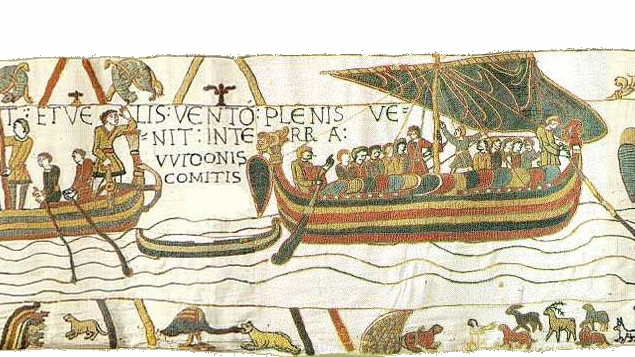 T : ET VE LIS : VENTO : PLENIS VE=
=NIT : INTE RRA :
VVIDONIS
COMITIS